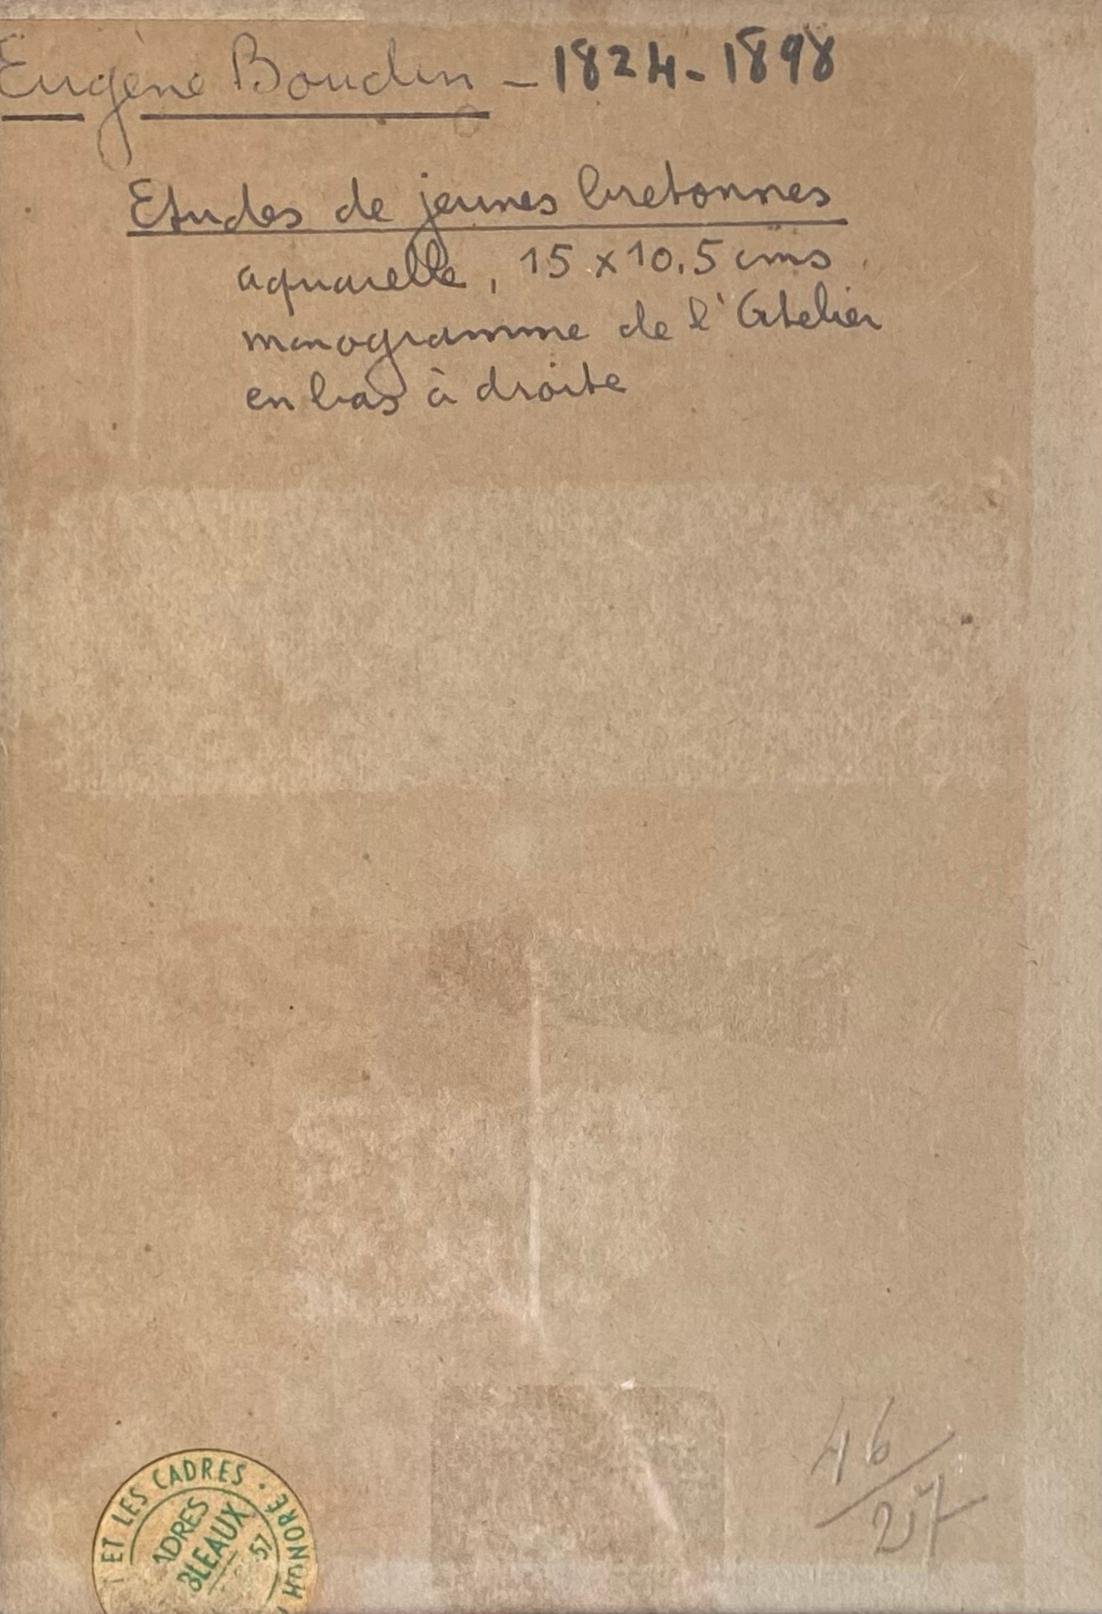 Eugène Boudin - 1824-1898
Etudes de jeunes bretonnes
aquarelle, 15 x 10,5 cms
monogramme de l'Atelier
en bas à droite
46/27
ET LES CADRES · HONORÉ
ADRES
BLEAUX
57